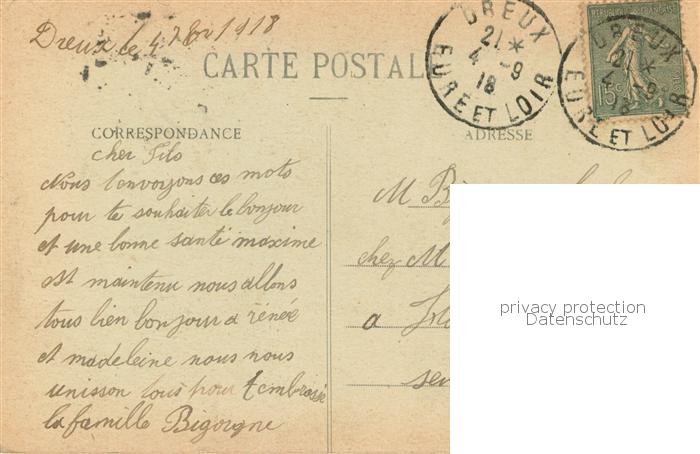 Dreux le 4 7bre 1918
CARTE POSTALE
DREUX
21 *
4 - 9
18
EURE ET LOIR
REPUBLIQUE FRANÇAISE
15c
DREUX
21 *
4 - 9
18
EURE ET LOIR
CORRESPONDANCE
cher Fils
Nous t'envoyons ces mots
pour te souhaiter le bonjour
et une bonne santé maxime
est maintenu nous allons
tous bien bonjour a rénée
et madeleine nous nous
unisson tous pour t'embrasse
la famille Bigorgne
ADRESSE
M
chez M
a
privacy protection
Datenschutz